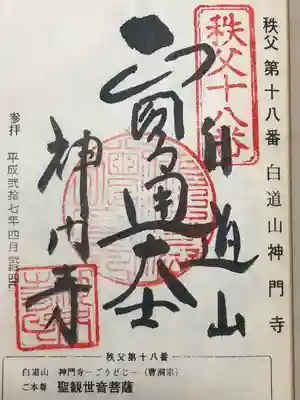 秩父 第十八番 白道山 神門寺
秩父十八番
白道山
圓通大士
神門寺
参拝 平成弐拾七年四月
秩父第十八番
白道山 神門寺－ごうどじ－（曹洞宗）
ご本尊 聖観世音菩薩